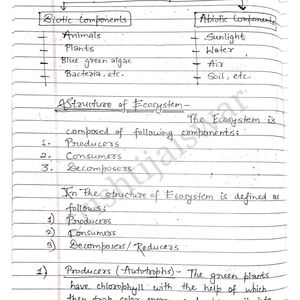 Biotic Components Abiotic Components
Animals Sunlight
Plants Water
Blue green algae Air
Bacteria, etc. Soil, etc.
Structure of Ecosystem -
The Ecosystem is
composed of following components:
1. Producers
2. Consumers
3. Decomposers
In The structure of Ecosystem is defined as
follows:
1) Producers
2) Consumers
3) Decomposers/Reducers
1) Producers (Autotrophs) - The green plants
have chlorophyll with the help of which
they trap solar